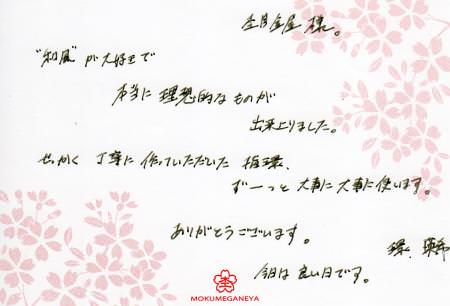 杢目金屋 様。
"和風" が大好きで
本当に 理想的な ものが
出来上りました。
せっかく 丁寧に 作っていただいた 指環、
ずーっと 大事に 大事に使います。
ありがとうございます。
今日は 良い日です。
MOKUMEGANEYA